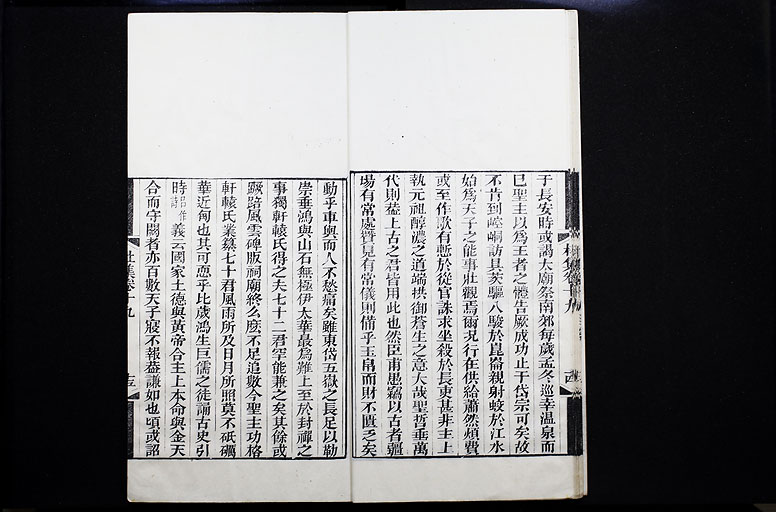 于長安時或謁太廟祭南郊每歲孟冬巡幸溫泉而
已聖主以爲王者之體告厥成功止于岱宗可矣故
不肯到崆峒訪具茨驅八駿於崑崙親射蛟於江水
始爲天子之能事壯觀焉爾況行在供給蕭然煩費
或至作歌有慙於從官誅求坐殺於長吏甚非主上
執元祖醇濃之道端拱御蒼生之意大哉聖哲垂萬
代則蓋上古之君皆用此也然臣甫愚竊以古者疆
場有常處贊見有常儀則備乎玉帛而財不匱乏矣
動乎車輿而人不愁痛矣雖東岱五嶽之長足以勒
崇垂鴻與山石無極伊太華最爲難上至於封禪之
事獨軒轅氏得之夫七十二君罕能兼之矣其餘或
蹶踣風雲碑版祠廟終么麽不足追數今聖主功格
軒轅氏業纂七十君風雨所及日月所照莫不砥礪
華近甸也其可恧乎比歲鴻生巨儒之徒誦古史引
時義云國家土德與黃帝合主上本命與金天
合而守闕者亦百數天子寢不報蓋謙如也頃或詔
杜集卷十九